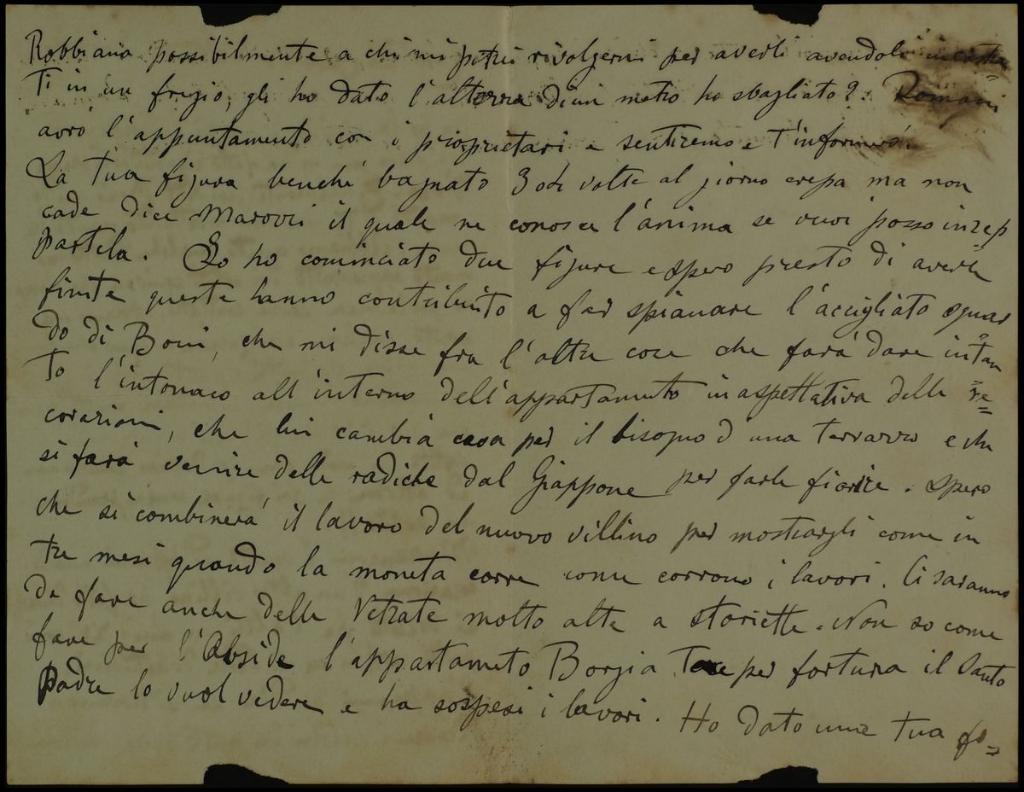 Robbiana possibilmente a chi mi potrei rivolgermi per averli avendoli incastra
ti in un fregio, gli ho dato l'altezza di un metro ho sbagliato? Domani
avrò l'appuntamento con i proprietari e sentiremo e t'informerò.
La tua figura benché bagnato 3 o 4 volte al giorno crepa ma non
cade dice Marovici il quale ne conosce l'anima se vuoi posso inzep
partela. Io ho cominciato due figure e spero presto di averle
finite queste hanno contribuito a far spianare l'accigliato sguar
do di Boni, che mi disse fra l'altre cose che farà dare intan
to l'intonaco all'interno dell'appartamento in aspettativa delle de=
corazioni, che lui cambia casa per il bisogno d una terrazza e che
si farà venire delle radiche dal Giappone per farle fiorire. Spero
che si combinerà il lavoro del nuovo villino per mostrargli come in
tre mesi quando la moneta corre come corrono i lavori. Ci saranno
da fare anche delle Vetrate molto alte a storiette. Non so come
fare per l'Abside l'appartamento Borgia per fortuna il Santo
Padre lo vuol vedere e ha sospesi i lavori. Ho dato una tua fo=